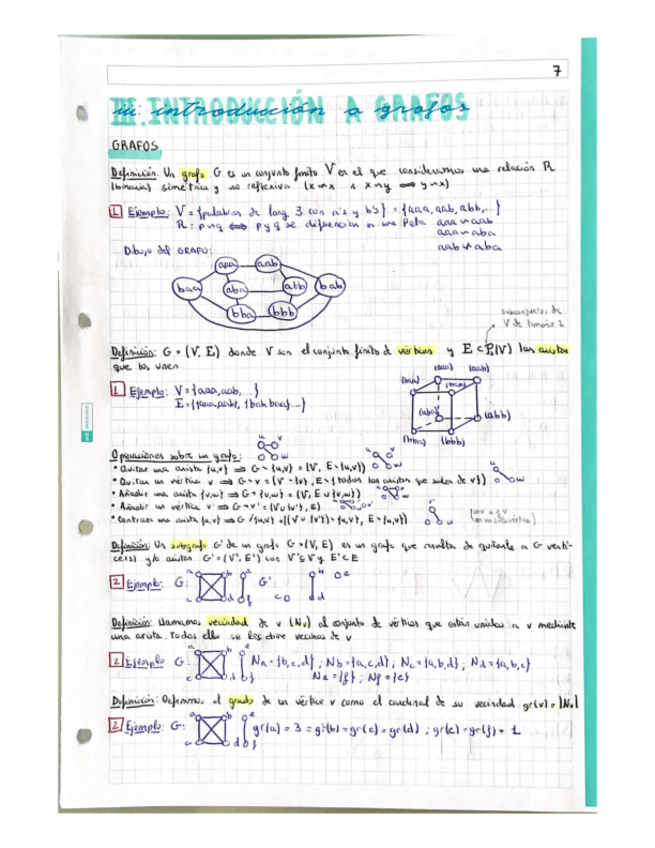 7
III. INTRODUCCIÓN A GRAFOS
iii. introducción a grafos
GRAFOS
Definición: Un grafo G es un conjunto finito V en el que consideramos una relación R
(binaria) simétrica y no reflexiva (x≁x ∧ x~y ⟹ y~x)
1 Ejemplo: V = {palabras de long 3 con a's y b's} = {aaa, aab, abb,...}
R: p~q ⟺ p y q se diferencian en una letra aaa~aab
aaa~aba
aab≁aba
Dibujo del GRAFO:
aaa aab
baa aba abb bab
bba bbb
subconjuntos de
V de tamaño 2
Definición: G = (V, E) donde V son el conjunto finito de vértices y E ⊂ P₂(V) las aristas
que los unen
1 Ejemplo: V = {aaa, aab, ...}
E = {{aaa, aab}, {bab, baa}...}
(aaa) (aab)
(baa) (bab)
(aba) (abb)
(bba) (bbb)
Operaciones sobre un grafo: u v w
• Quitar una arista {u,v} ⟹ G - {u,v} = (V, E-{u,v}) u v w
• Quitar un vértice v ⟹ G - v = (V - {v}, E - {todas las aristas que salen de v}) u w
• Añadir una arista {v,w} ⟹ G + {v,w} = (V, E ∪ {v,w})
• Añadir un vértice v' ⟹ G + v' = (V ∪ {v'}, E)
• Contraer una arista {u,v} ⟹ G / {u,v} = ((V ∪ {v'}) - {u,v}, E - {u,v}) v' w (une u y v
en un solo vértice)
Definición: Un subgrafo G' de un grafo G = (V, E) es un grafo que resulta de quitarle a G vérti-
ce(s) y/o aristas G' = (V', E') con V' ⊆ V y E' ⊂ E
2 Ejemplo: G: a b c d e f G': b d c e
Definición: Llamamos vecindad de v (Nv) al conjunto de vértices que están unidos a v mediante
una arista. Todos ellos se les dice vecinos de v
2 Ejemplo G: a b c d e f Na = {b,c,d} ; Nb = {a,c,d} ; Nc = {a,b,d} ; Nd = {a,b,c}
Ne = {f} ; Nf = {e}
Definición: Definimos el grado de un vértice v como el cardinal de su vecindad gr(v) = |Nv|
2 Ejemplo: G: a b c d e f gr(a) = 3 = gr(b) = gr(c) = gr(d) ; gr(e) = gr(f) = 1